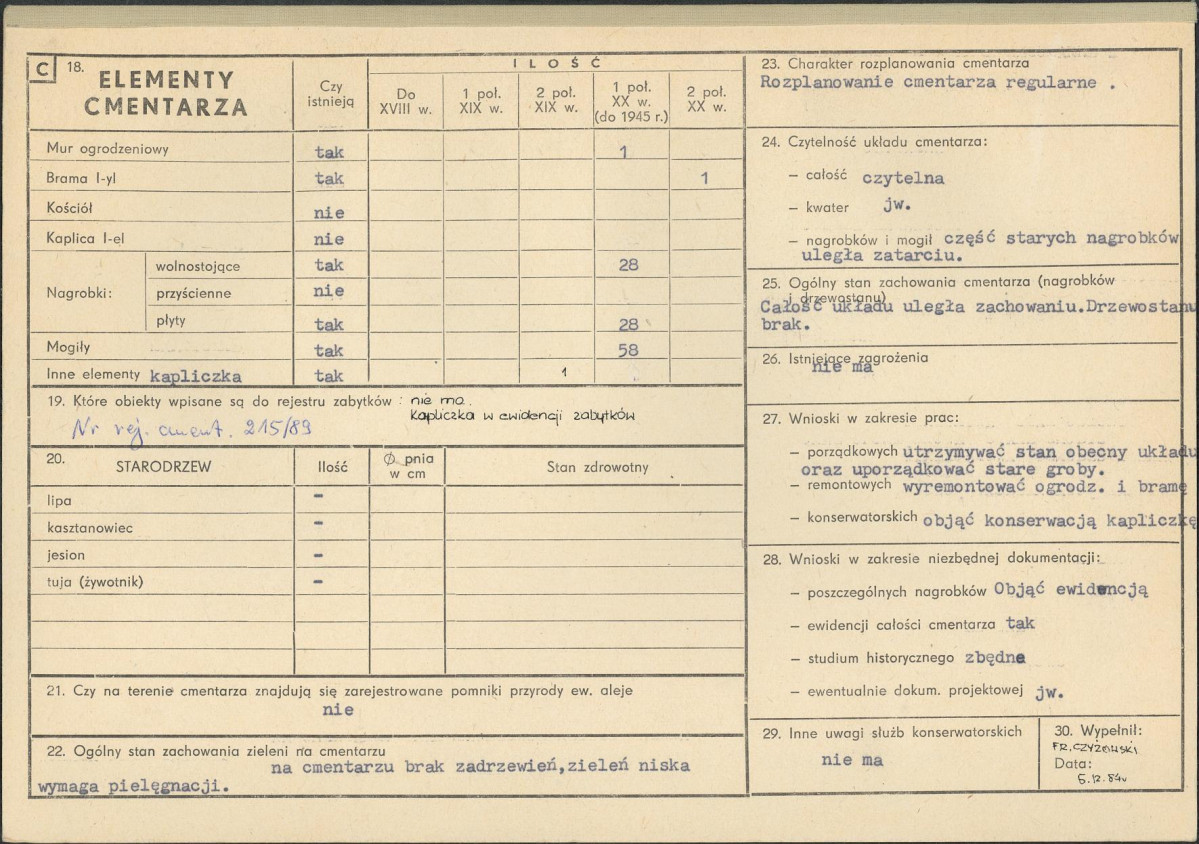 C 18. ELEMENTY CMENTARZA
Czy istnieją
ILOŚĆ
Do XVIII w.
1 poł. XIX w.
2 poł. XIX w.
1 poł. XX w. (do 1945 r.)
2 poł. XX w.
Mur ogrodzeniowy tak 1
Brama I-yl tak 1
Kościół nie
Kaplica I-el nie
Nagrobki:
wolnostojące tak 28
przyścienne nie
płyty tak 28
Mogiły tak 58
Inne elementy kapliczka tak 1
19. Które obiekty wpisane są do rejestru zabytków : nie ma.
Kapliczka w ewidencji zabytków
Nr rej. cment. 215/89
20. STARODRZEW Ilość Ø pnia w cm Stan zdrowotny
lipa -
kasztanowiec -
jesion -
tuja (żywotnik) -
21. Czy na terenie cmentarza znajdują się zarejestrowane pomniki przyrody ew. aleje
nie
22. Ogólny stan zachowania zieleni na cmentarzu
na cmentarzu brak zadrzewień,zieleń niska
wymaga pielęgnacji.
23. Charakter rozplanowania cmentarza
Rozplanowanie cmentarza regularne .
24. Czytelność układu cmentarza:
— całość czytelna
— kwater jw.
— nagrobków i mogił część starych nagrobków
uległa zatarciu.
25. Ogólny stan zachowania cmentarza (nagrobków
i drzewostanu)
Całość układu uległa zachowaniu.Drzewostanu
brak.
26. Istniejące zagrożenia
nie ma
27. Wnioski w zakresie prac:
— porządkowych utrzymywać stan obecny układu
oraz uporządkować stare groby.
— remontowych wyremontować ogrodz. i bramę
— konserwatorskich objąć konserwacją kapliczkę
28. Wnioski w zakresie niezbędnej dokumentacji:
— poszczególnych nagrobków Objąć ewidencją
— ewidencji całości cmentarza tak
— studium historycznego zbędne
— ewentualnie dokum. projektowej jw.
29. Inne uwagi służb konserwatorskich
nie ma
30. Wypełnił:
FR. CZYŻEWSKI
Data:
5.12.84